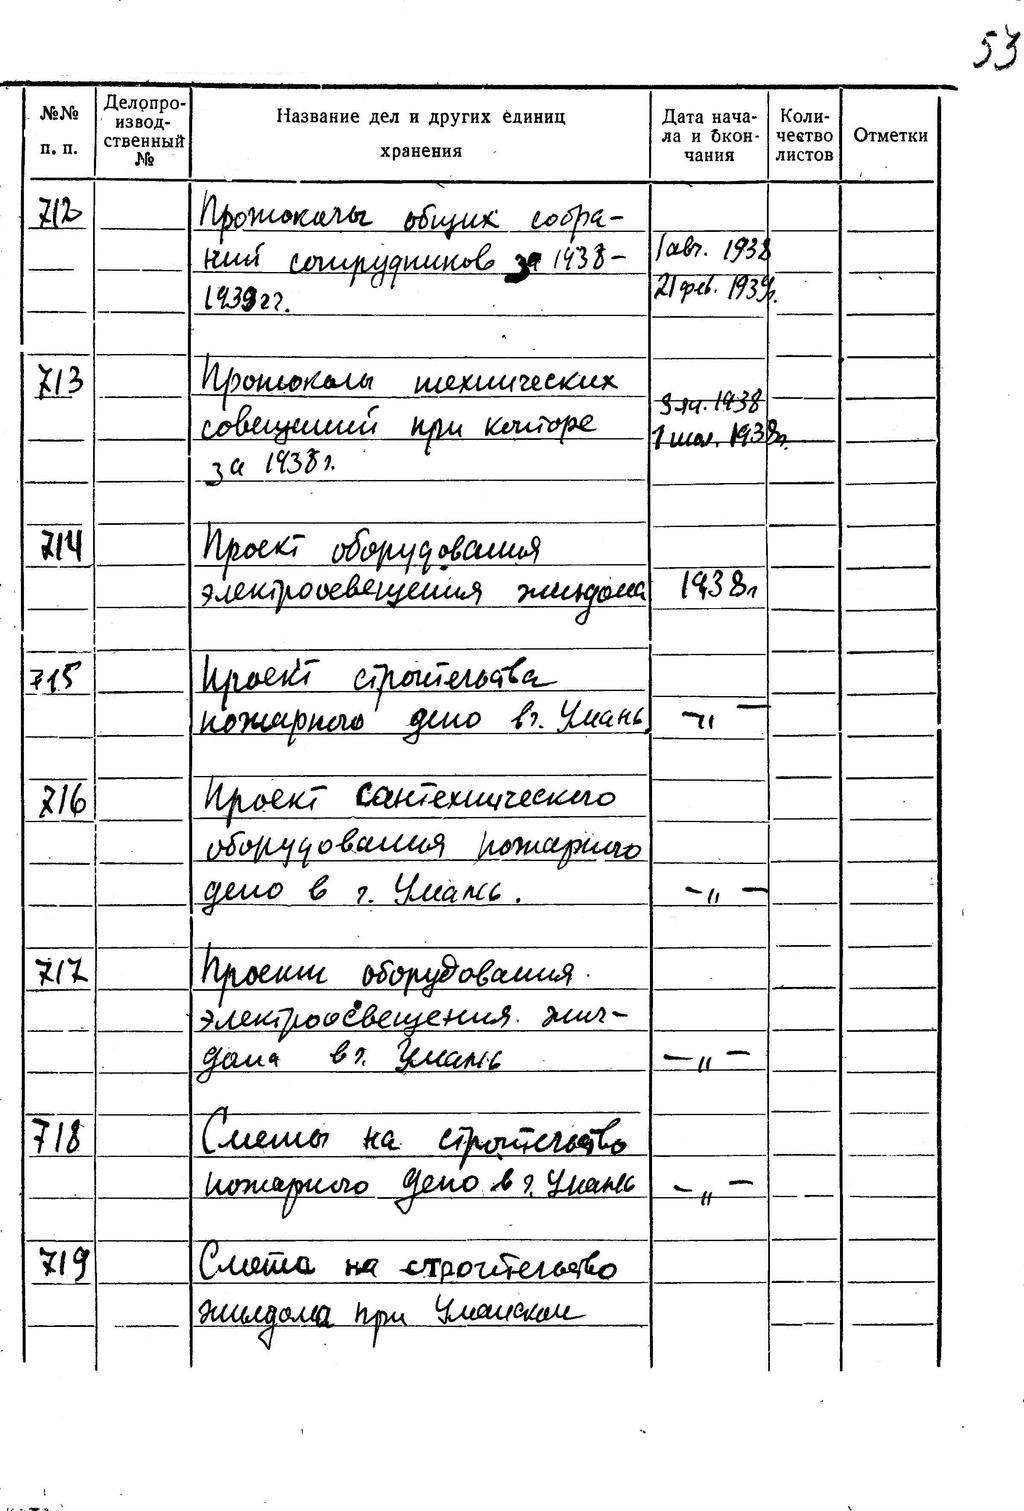 53
№№ п. п.
Делопро-
извод-
ственный
№
Название дел и других единиц
хранения
Дата нача-
ла и окон-
чания
Коли-
чество
листов
Отметки
712
Протоколы общих собра-
ний сотрудников за 1938-
1939гг.
1 авг. 1938
21 фев. 1939г.
713
Протоколы технических
совещаний при конторе
за 1938г.
3 ян. 1938
1 июл. 1938г.
714
Проект оборудования
электроосвещения жилдома
1938г
715
Проект строительства
пожарного депо в г. Умань.
-"-
716
Проект сантехнического
оборудования пожарного
депо в г. Умань.
-"-
717
Проект оборудования
электроосвещения жил-
дома в г. Умань
-"-
718
Сметы на строительство
пожарного депо в г. Умань
-"-
719
Смета на строительство
жилдома при Уманском